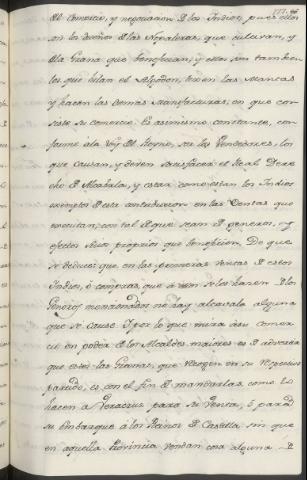 el Comercio, y negociacion de los Indios, pues ellos
son los dueños de las Nopaleras, que cultivan, y
dela Grana que benefician, y ellos son tambien
los que hilan el Algodon, texen las Mantas
y hacen las demas Manifacturas, en que con-
siste su comercio. Es asimismo constante, con-
forme ala Ley del Reyno, ser los Vendedores, los
que causan, y deven satisfacer el Real Dere-
cho de Alcabala, y estar como estan los Indios
exemptos de esta contribucion en las Ventas que
executan, con tal de que sean de generos, y
efectos suios proprios que benefician. De que
se deduce que en las primeras ventas de estos
Indios, ó compras, que á ellos se les hacen de los
Generos mencionados no hay alcavala alguna
que se cause. Y por lo que mira á su comer-
cio en poder de los Alcaldes maiores es de advertir
que estos las Granas, que recogen en su respectivo
partido, es, con el fin de mandarlas como lo
hacen á Veracruz para su Venta, ó para
su embarque á los Reinos de Castilla, sin que
en aquella Provincia vendan cosa alguna de